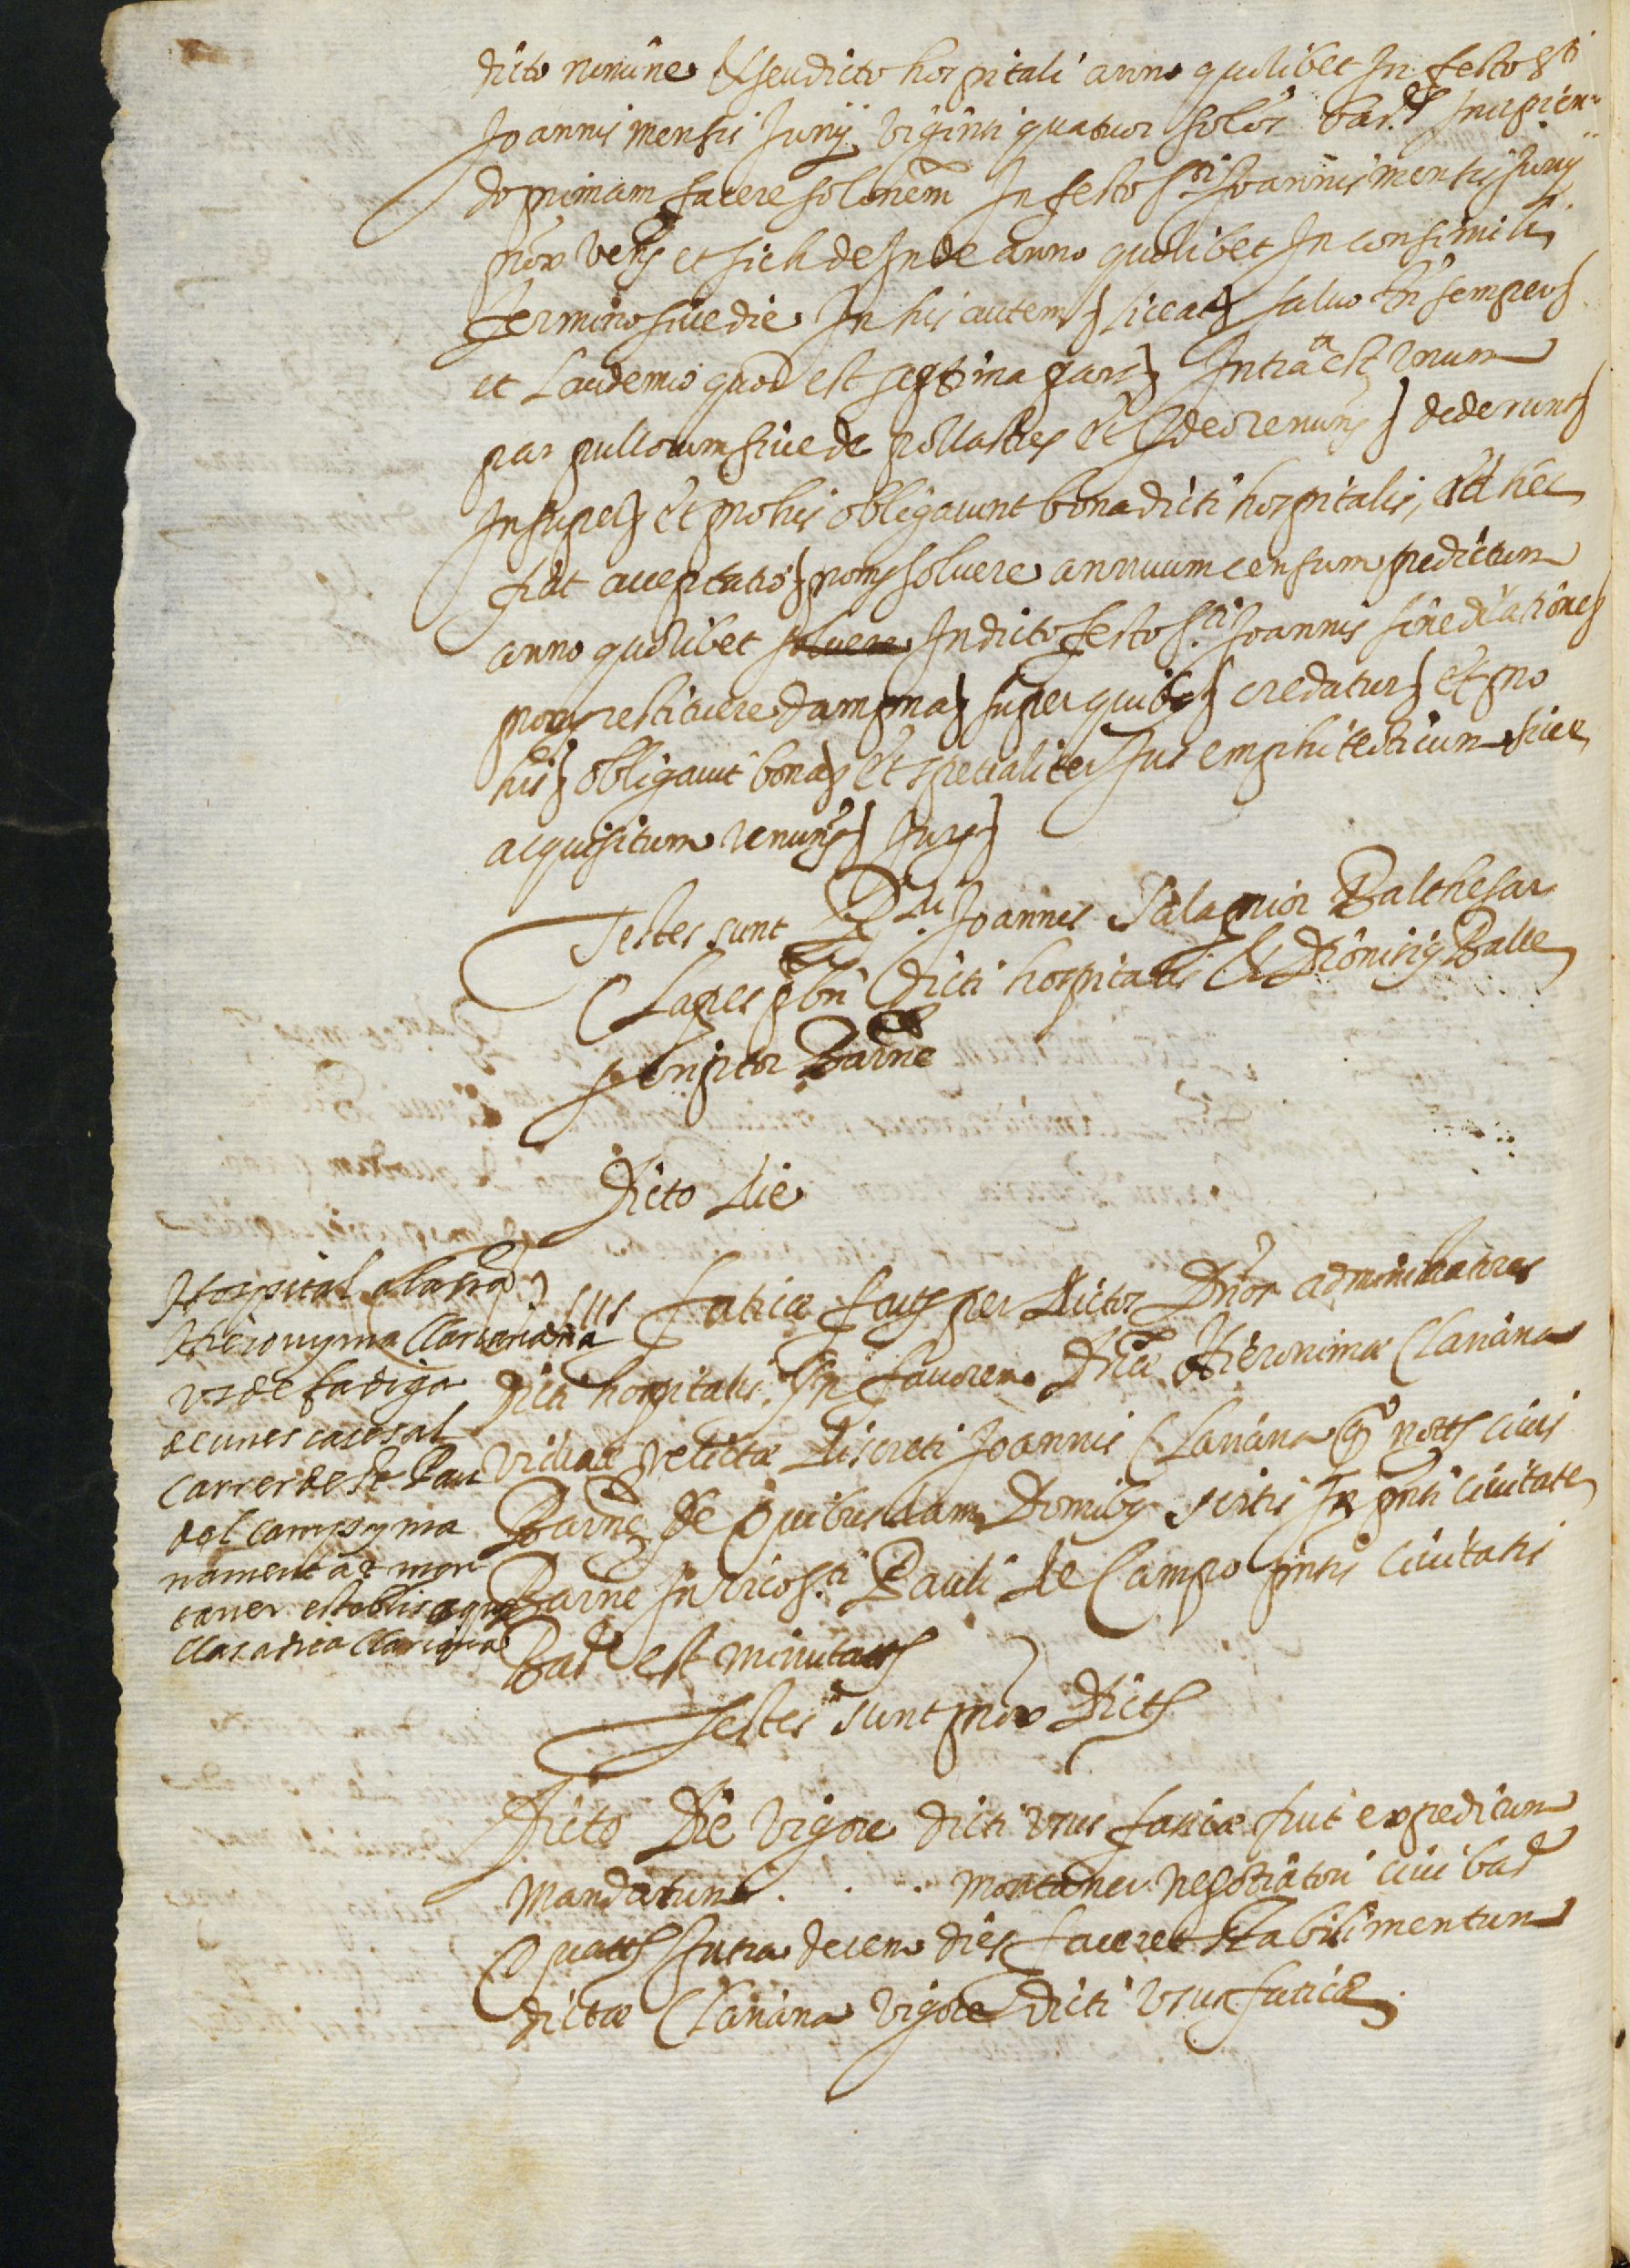 dicto nomine & seu dicto hospitali anno quolibet In festo Sti
Joannis mensis Junij viginti quatuor solos bar. Incipien-
do primam facere solonem In festo Sti Joannis mensis Junij
prox vent et sich deInde anno quolibet In consimili
termino sive die In his autem liceat salvo tn semper
et Laudemio quod est septima pars Intrata est unum
par pullorum sive de pollastres et Ideo renuns dederunt
Insuper et pro his obligarunt bona dicti hospitalis, Ad hec
fiat acceptatio proms solvere annuum censum predictum
anno quolibet solvere In dicto festo Sti Joannis sine dilatione
proms restituere dampna super quibus credatur et pro
his obligavit bona et specialiter Jus emphiteoticum sive
acquisitum renuns Jurs
Testes sunt Joannes Salagnior Balthesar
Clapes pbri dicti hospitalis & Dionisij Balle
scriptor Barne
Dicto die
Hospital a la sra
Hieronyma Clariana
us de fadiga
de unes cases al
carrer de St Pau
del camp y ma
nament a t mon
taner establis a qa
Clas a dita Clariana
Jus fatice fact per dictos Dnos administratores
dicti hospitalis In favorem Dne Hieronime Clariana
viduae relictae discreti Joannis Clariana qo notti civis
Barne de quibusdam Domibus sitis In pnti civitate
Barne In vico Sti Pauli de Campo pntis civitatis
Bar est minutatus
Testes sunt prox dicti
Dicto die vigore dicti usus faticae fuit expeditum
mandatum . . . montaner negotiatori civi bar
quatts Intra decem dies faceret stabilimentum
dictae Clariana vigore dicti usus faticae